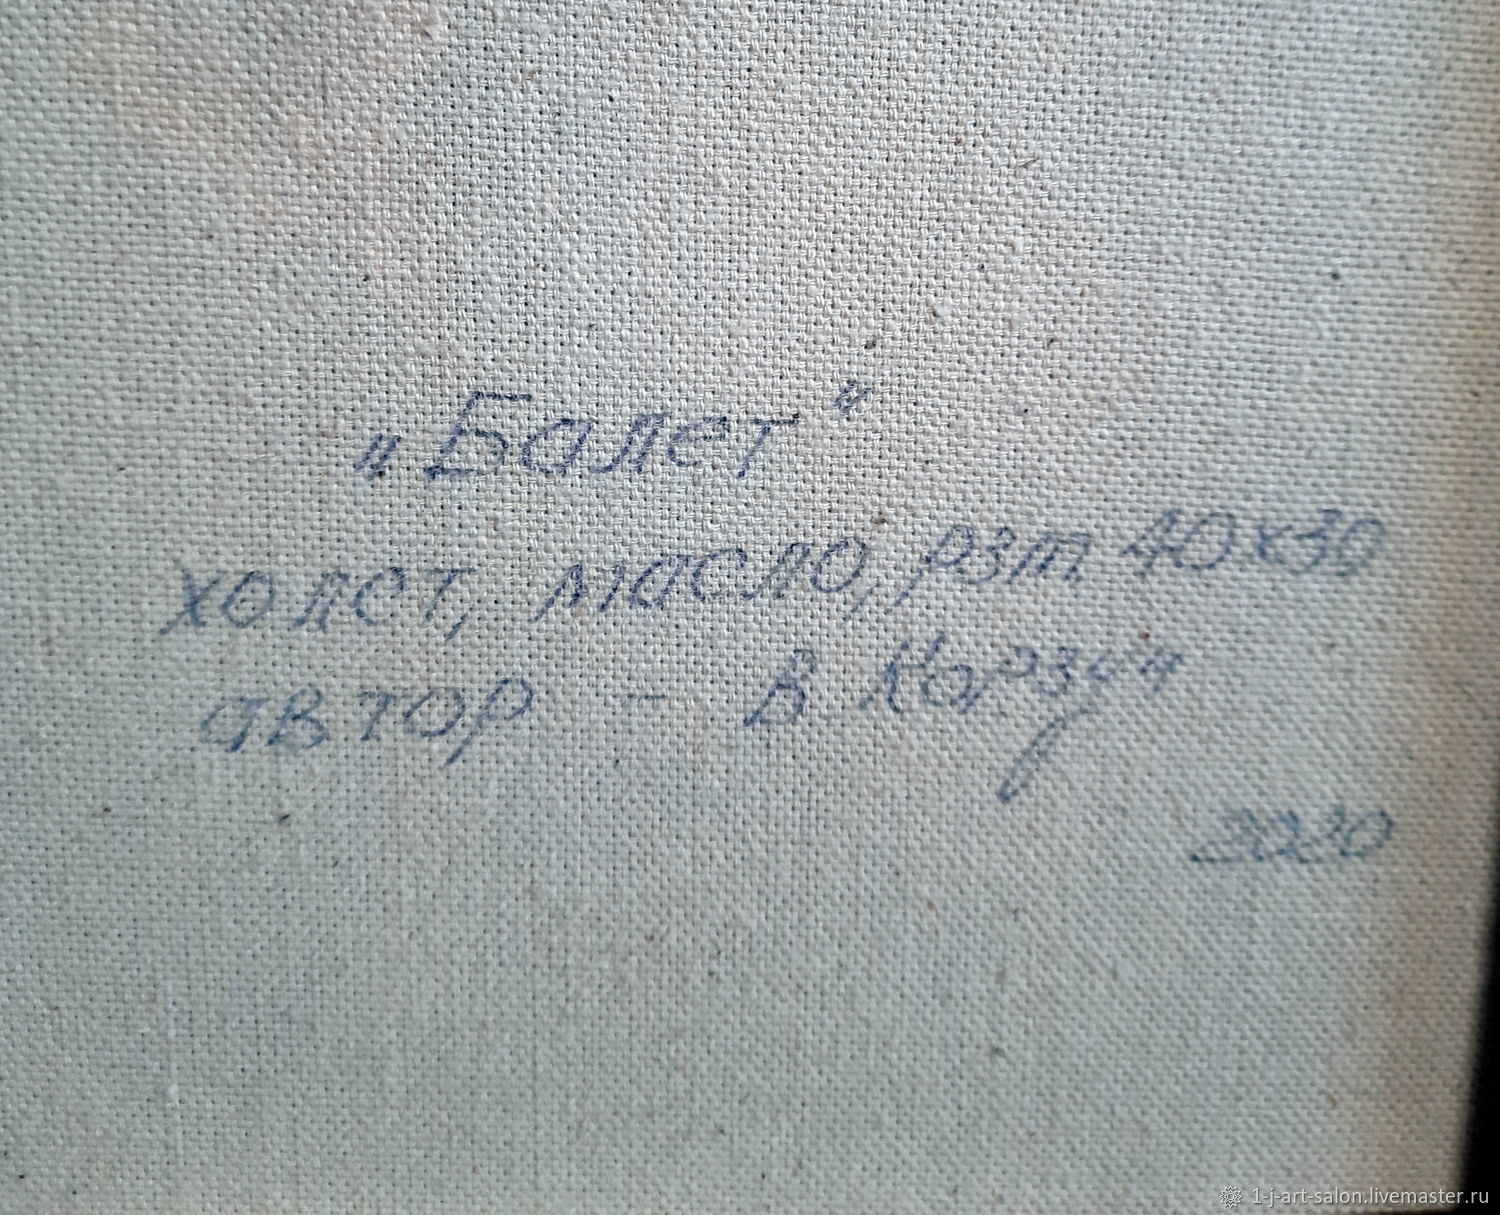 „Балет"
холст, масло, рзт 40х30
автор - В Корзун
2020
1-j-art-salon.livemaster.ru